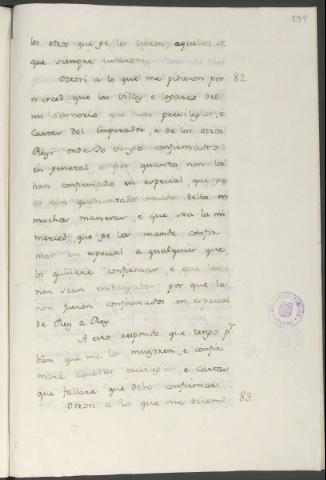 299
los otros que se los dieron, aquellos de
que siempre usaron.
Otrosi a lo que me pidieron por 82.
merced que las Villas e logares del
mi Señorio que han previlegios, e
Cartas del Emperador, e de los otros
Reys onde Yo vengo confirmados
en general, e por quanto non los
han confirmado en especial, que
dello en
muchas maneras, e que sea la mi
merced que se las mande confir
mar en especial a qualquier que
los quisiere confirmar, e que
non sean embargados por que la
non fueron confirmados en especial
de Rey a Rey.
A esto respondo que tengo pr
bien que me los muestren, e confir
maré aquellos previlegios, e Cartas
que fallare que debo confirmar.
Otrosi a lo que me dicen 83.